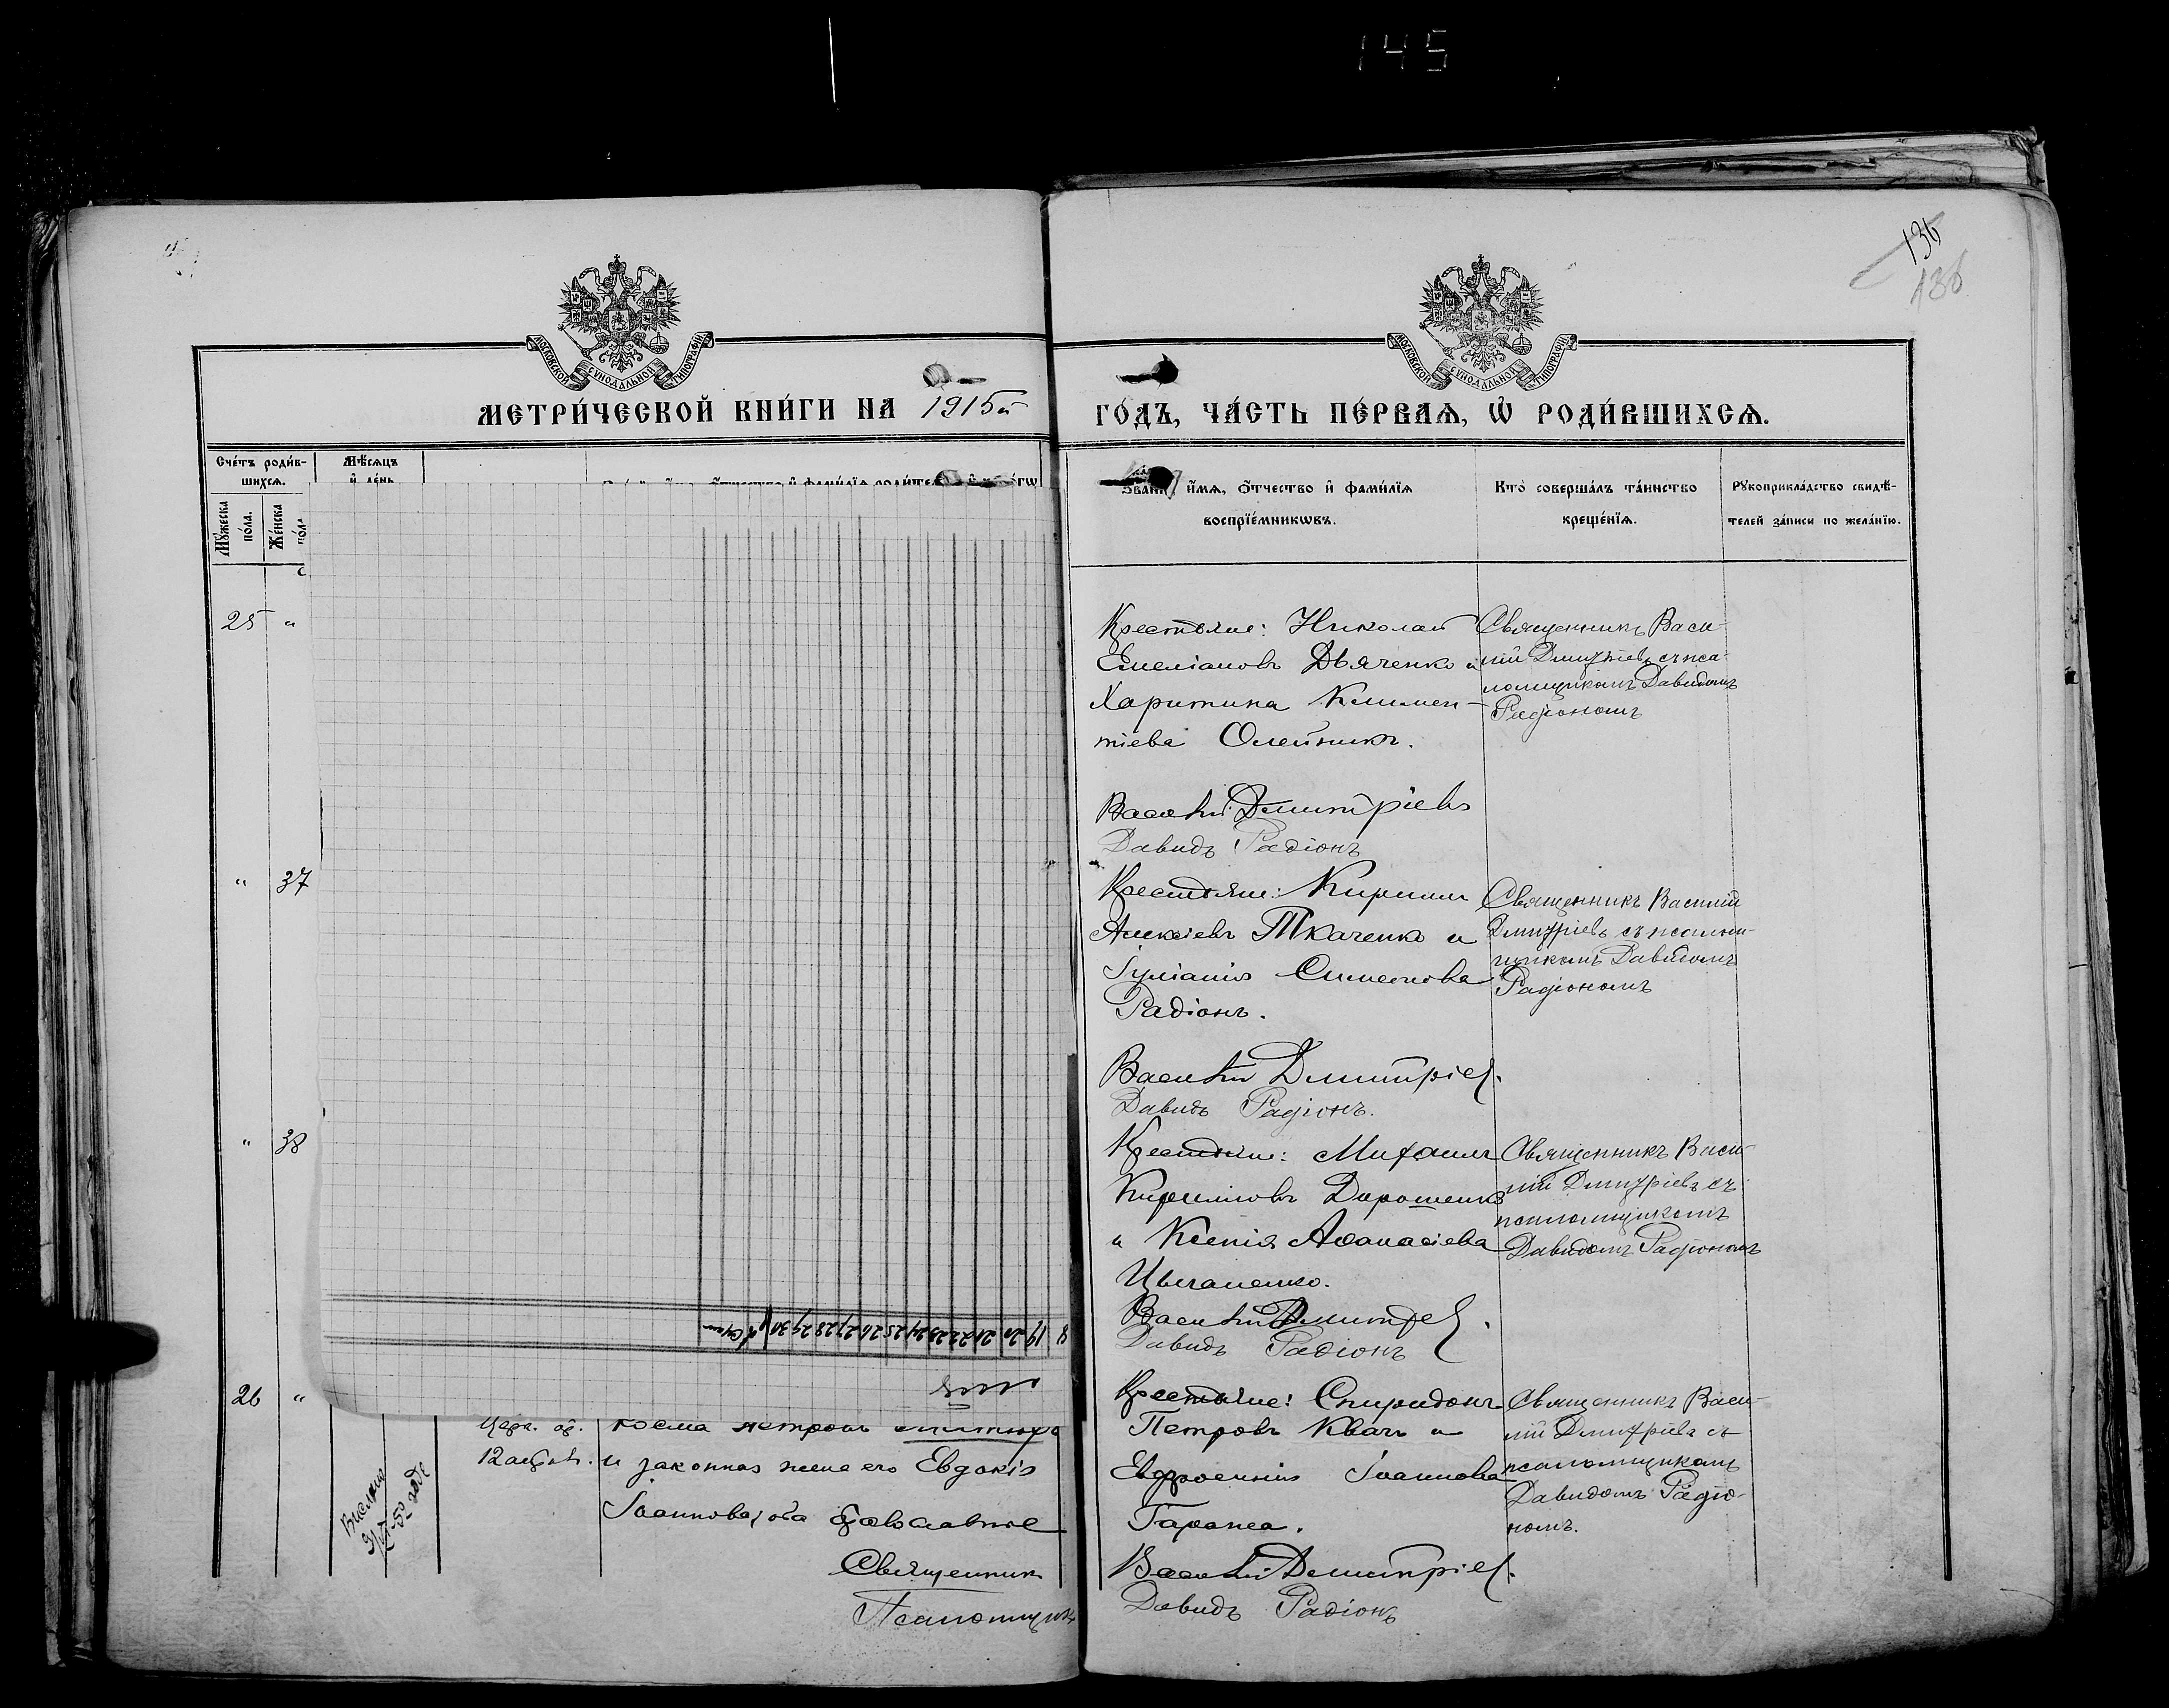 145
136
136
МОСКОВСКОЙ СѴНОДАЛЬНОЙ ТИПОГРАФІИ
МОСКОВСКОЙ СѴНОДАЛЬНОЙ ТИПОГРАФІИ
МЕТРИ́ЧЕСКОЙ КНИ́ГИ НА 1915й
ГО́ДЪ, ЧА́СТЬ ПЕ́РВАЯ, Ѡ РОДИ́ВШИХСЯ.
Сче́тъ роди́в-
шихся.
Мѣ́сяцъ
и де́нь
Мꙋ́жеска
по́ла.
Же́нска
по́ла
о́тчество и фами́лїя роди́тел
Зва́нїе, и́мя, о́тчество и фами́лїя
воспрїе́мникѡвъ.
Кто̀ соверша́лъ та́инство
креще́нїя.
Рꙋкоприкла́дство свидѣ́-
телей за́писи по жела́нїю.
25 "
Крестьяне: Николай
Емеліановъ Дьяченко и
Харитина Климен-
тіева Олейникъ.
Василій Дмитріевъ
Давидъ Радіонъ
Священникъ Васи-
лій Дмитріевъ съ пса-
ломщикомъ Давидомъ
Радіономъ
" 37
Крестьяне: Кириллъ
Алексіевъ Ткаченко и
Іуліанія Симеонова
Радіонъ.
Василій Дмитріев.
Давидъ Радіонъ.
Священникъ Василій
Дмитріевъ съ псалом-
щикомъ Давидомъ
Радіономъ
" 38
Крестьяне: Михаилъ
Кирилловъ Дорошенко
и Ксенія Аѳанасіева
Цыганенко.
Василій Дмитріев.
Давидъ Радіонъ
Священникъ Васи-
лій Дмитріевъ съ
псаломщикомъ
Давидомъ Радіономъ
19 20 21 22 23 24 25 26 27 28 29 30
26 "
12 августа.
Косма Петровъ
и законная жена его Евдокія
Іоаннова, оба православные
Священникъ
Псаломщикъ
Крестьяне: Спиридонъ
Петровъ Квачъ и
Евфросинія Іоаннова
Гаранжа.
Василій Дмитріев.
Давидъ Радіонъ
Священникъ Васи-
лій Дмитріевъ съ
псаломщикомъ
Давидомъ Радіо-
номъ.